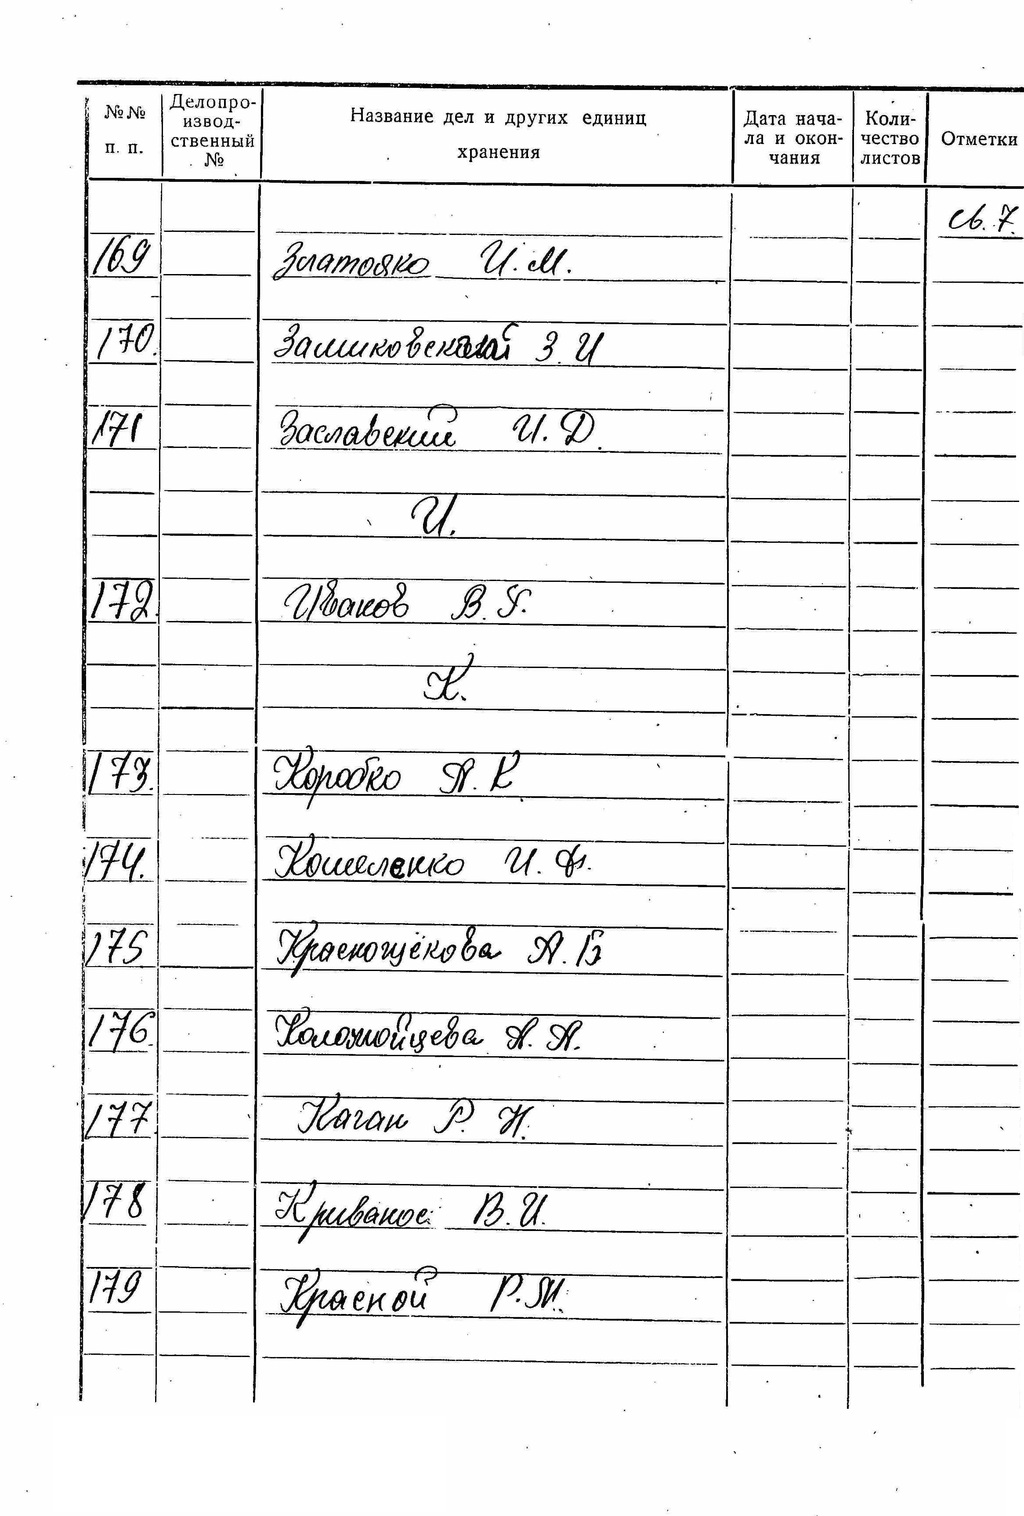 №№ п. п. Делопро-извод-ственный № Название дел и других единиц хранения Дата нача-ла и окон-чания Коли-чество листов Отметки
св. 7.
169 Златояко И. М.
170. З. И
171 Заславский И. Д.
И.
172. Иванов В. Г.
К.
173. Коробко А. К
174. Кошеленко И. Ф.
175 Краснощёкова А. Б
176. Коломойцева А. А.
177 Каган Р. Н.
178 Кривонос В. И.
179 Красной Р. М.